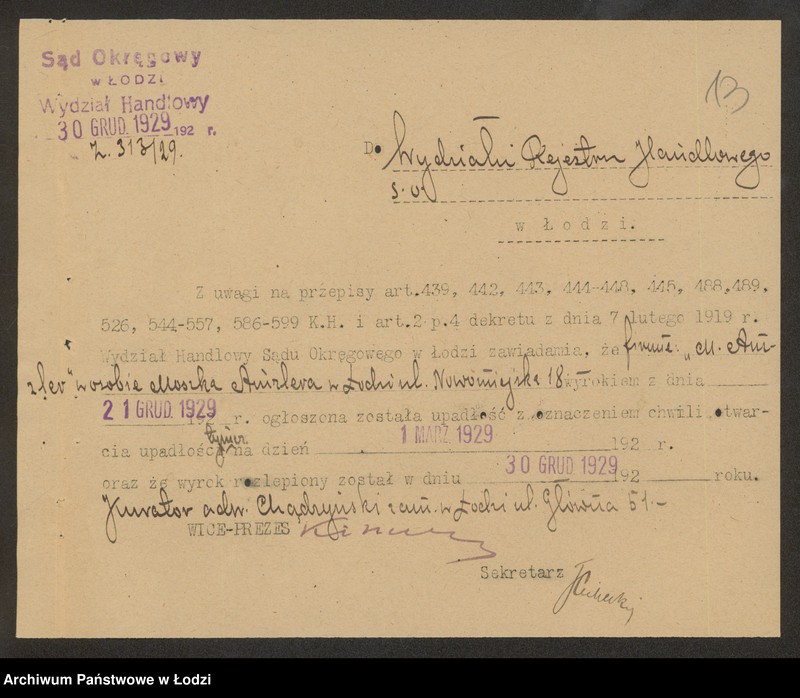 Sąd Okręgowy
w ŁODZI
Wydział Handlowy
30 GRUD. 1929 192 r.
Z. 313/29.
13
Do Wydziału Rejestru Handlowego
S. O.
w Łodzi.
Z uwagi na przepisy art.439, 442, 443, 444-448, 445, 488,489,
526, 544-557, 586-599 K.H. i art.2 p.4 dekretu z dnia 7 lutego 1919 r.
Wydział Handlowy Sądu Okręgowego w Łodzi zawiadamia, że firmie: „M.
w osobie Moszka w Łodzi ul. Nowomiejska 18 wyrokiem z dnia
21 GRUD. 1929 192 r. ogłoszona została upadłość z oznaczeniem chwili otwar-
cia upadłości na dzień 1 MARZ. 1929 192 r.
oraz że wyrok rozlepiony został w dniu 30 GRUD 1929 192 roku.
Kurator adw. Chądzyński zam. w Łodzi ul. Główna 51.-
WICE-PREZES
Sekretarz
Archiwum Państwowe w Łodzi